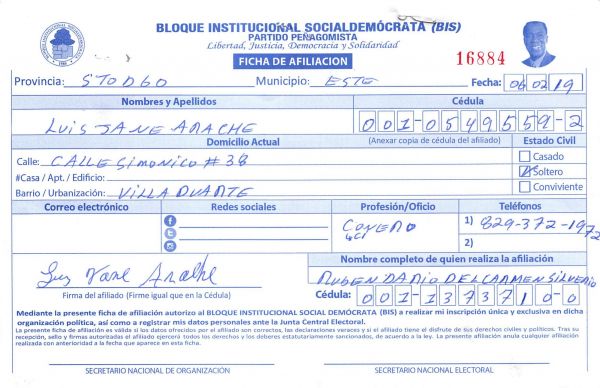 BLOQUE INSTITUCIONAL SOCIALDEMÓCRATA (BIS)
PARTIDO PEÑAGOMISTA
Libertad, Justicia, Democracia y Solidaridad
FICHA DE AFILIACION
16884
Provincia: STODGO Municipio: ESTE Fecha: 06 02 19
Nombres y Apellidos Cédula
LUIS JANE ARACHE 001-0549559-2
Domicilio Actual (Anexar copia de cédula del afiliado) Estado Civil
Calle: CALLE SIMONICO # 38 Casado
#Casa / Apt. / Edificio: Soltero
Barrio / Urbanización: VILLA DUARTE Conviviente
Correo electrónico Redes sociales Profesión/Oficio Teléfonos
1) 829-372-1972
2)
Nombre completo de quien realiza la afiliación
RUBEN DARIO DEL CARMEN SILVERIO
Firma del afiliado (Firme igual que en la Cédula) Cédula: 001-1373710-0
Mediante la presente ficha de afiliación autorizo al BLOQUE INSTITUCIONAL SOCIAL DEMÓCRATA (BIS) a realizar mi inscripción única y exclusiva en dicha
organización política, así como a registrar mis datos personales ante la Junta Central Electoral.
La presente ficha de afiliación es válida si los datos ofrecidos por el afiliado son correctos, las declaraciones veraces y si el afiliado tiene el disfrute de sus derechos civiles y políticos. Tras su
recepción, sello y firmas autorizadas el afiliado ejercerá todos los derechos y los deberes estatutariamente sancionados, de acuerdo a la ley. La presente afiliación anula cualquier afiliación
realizada con anterioridad a la fecha que aparece en esta ficha.
SECRETARIO NACIONAL DE ORGANIZACIÓN SECRETARIO NACIONAL ELECTORAL